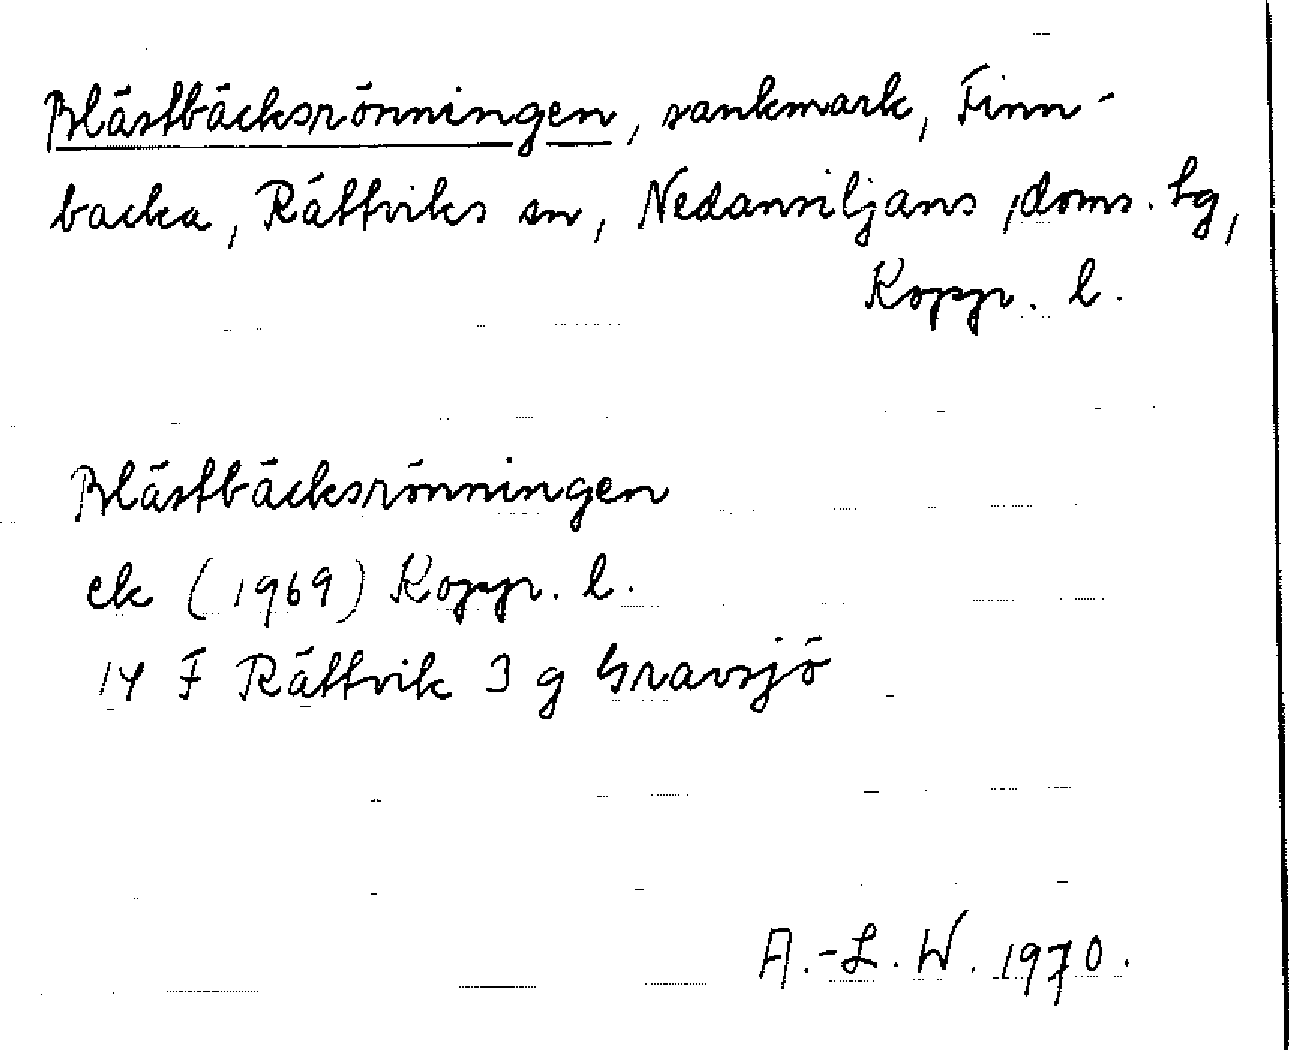 Blästbäcksrönningen, sankmark, Finn-
backa, Rättviks sn, Nedansiljans doms. tg,
Koppr. l.
Blästbäcksrönningen
ek (1969) Koppr. l.
14 F Rättvik 3 g Gravsjö
A.-L. W. 1970.